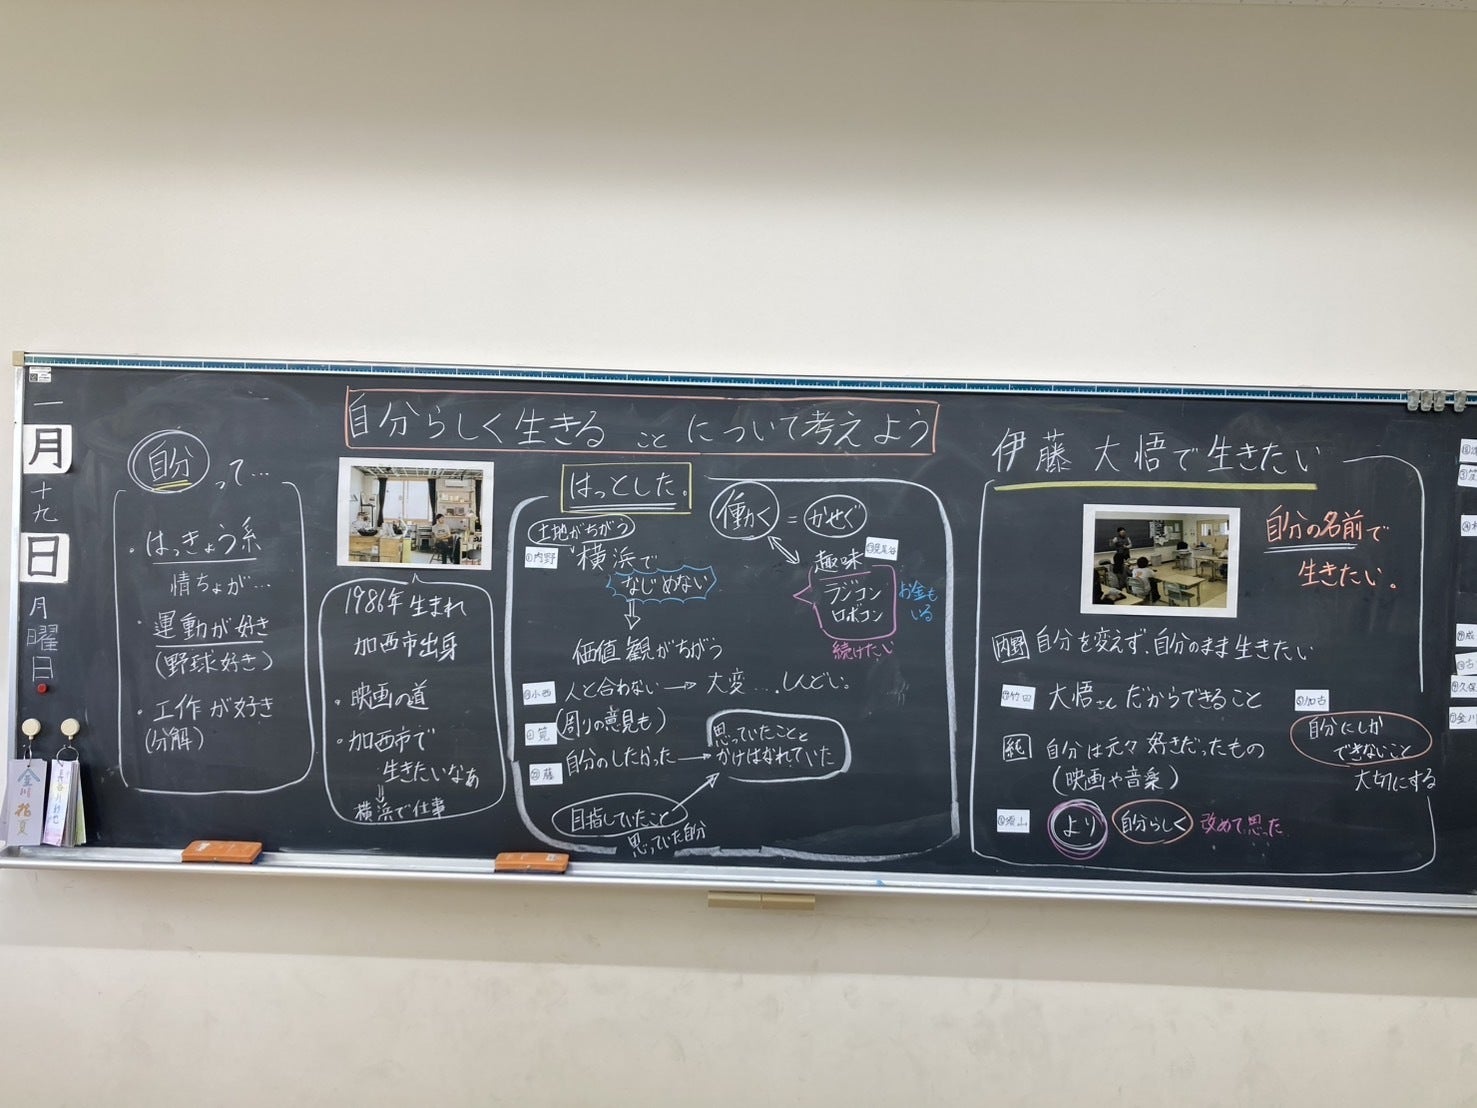 一
月
十九
日
月
曜
日
自分らしく生きることについて考えよう
自分って…
・はっきょう系
情ちょが…
・運動が好き
(野球好き)
・工作が好き
(分解)
1986年生まれ
加西市出身
・映画の道
・加西市で
生きたいなぁ
横浜で仕事
はっとした。
土地がちがう
内野
横浜で
なじめない
価値観がちがう
小西
人と合わない→大変…しんどい。
(周りの意見も)
筧
藤
自分のしたかった→
思っていたことと
かけはなれていた
目指していたこと
思っていた自分
働く=かせぐ
趣味
ラジコン
ロボコン
お金も
いる
続けたい
伊藤大悟で生きたい
自分の名前で
生きたい。
内野 自分を変えず、自分のまま生きたい
竹田 大悟さんだからできること
純 自分は元々好きだったもの
(映画や音楽)
加古
自分にしか
できないこと
大切にする
須山 より 自分らしく 改めて思った
金川